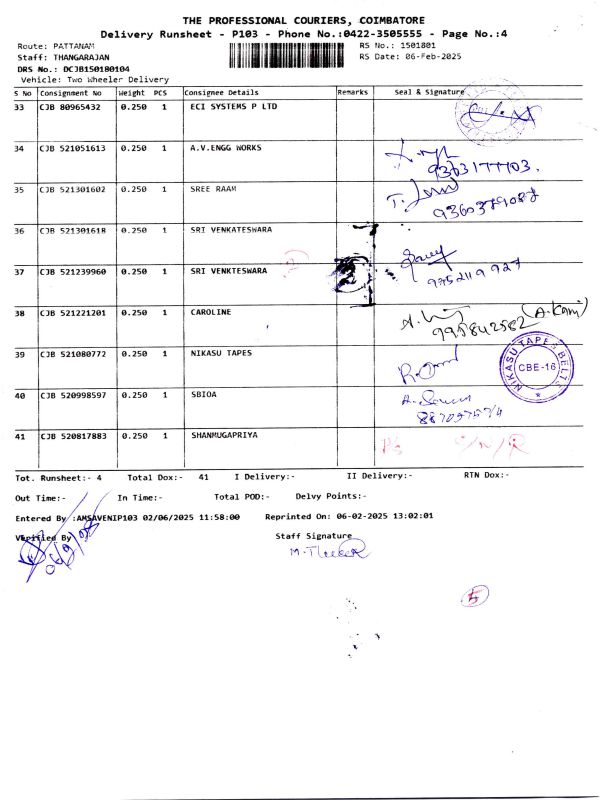 THE PROFESSIONAL COURIERS, COIMBATORE
Delivery Runsheet - P103 - Phone No.:0422-3505555 - Page No.:4
Route: PATTANAM RS No.: 1501801
Staff: THANGARAJAN RS Date: 06-Feb-2025
DRS No.: DCJB150180104
Vehicle: Two Wheeler Delivery
S No Consignment No Weight PCS Consignee Details Remarks Seal & Signature
33 CJB 80965432 0.250 1 ECI SYSTEMS P LTD
34 CJB 521051613 0.250 1 A.V.ENGG WORKS
9363177103.
35 CJB 521301602 0.250 1 SREE RAAM
9360379087
36 CJB 521301618 0.250 1 SRI VENKATESWARA
37 CJB 521239960 0.250 1 SRI VENKTESWARA
9952119927
38 CJB 521221201 0.250 1 CAROLINE
(A.Kani)
39 CJB 521080772 0.250 1 NIKASU TAPES
NIKASU TAPES BELTS
CBE-16
40 CJB 520998597 0.250 1 SBIOA
41 CJB 520817883 0.250 1 SHANMUGAPRIYA
Tot. Runsheet:- 4 Total Dox:- 41 I Delivery:- II Delivery:- RTN Dox:-
Out Time:- In Time:- Total POD:- Delvy Points:-
Entered By :AMSAVENIP103 02/06/2025 11:58:00 Reprinted On: 06-02-2025 13:02:01
Verified By Staff Signature
5